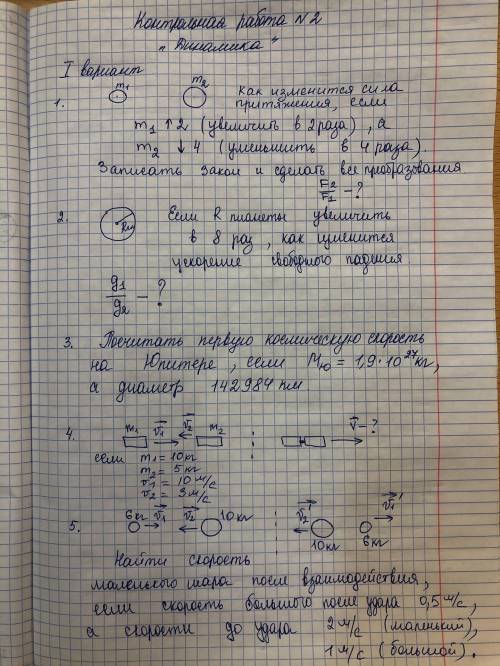 Контрольная работа №2
"Динамика"
I вариант
1. m₁ m₂ Как изменится сила
притяжения, если
m₁ ↑ 2 (увеличить в 2 раза), а
m₂ ↓ 4 (уменьшить в 4 раза).
Записать закон и сделать все преобразования
F₂/F₁ - ?
2. Rпл Если R планеты увеличить
в 8 раз, как изменится
ускорение свободного падения.
g₁/g₂ - ?
3. Посчитать первую космическую скорость
на Юпитере, если Mю = 1,9·10²⁷кг,
а диаметр 142984 км
4. m₁ v₁ v₂ m₂ v - ?
если m₁ = 10кг
m₂ = 5 кг
v₁ = 10 м/с
v₂ = 3 м/с
5. 6кг v₁ v₂ 10кг v₂' 10кг v₁' 6кг
Найти скорость
маленького шара после взаимодействия,
если скорость большого после удара 0,5 м/с,
а скорости до удара 2 м/с (маленький),
1 м/с (большой).